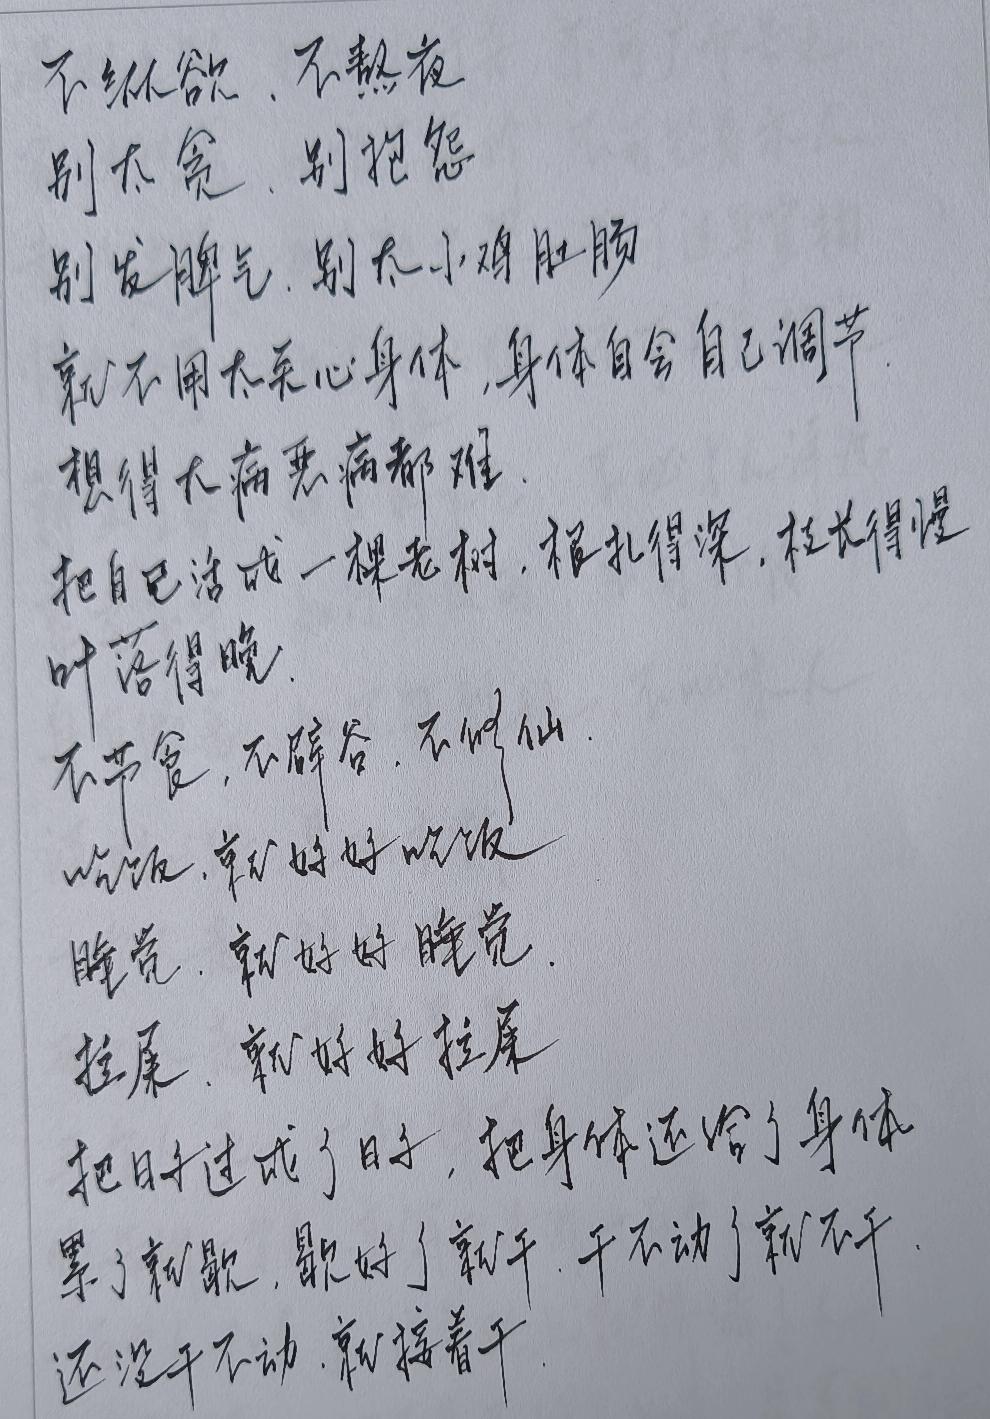 不纵欲、不熬夜
别太贪、别抱怨
别发脾气、别太小鸡肚肠
就不用太关心身体,身体自会自己调节.
想得大病恶病都难.
把自己活成一棵老树,根扎得深,枝长得慢
叶落得晚.
不节食,不辟谷,不修仙.
吃饭,就好好吃饭
睡觉、就好好睡觉.
拉屎、就好好拉屎
把日子过成了日子,把身体还给了身体
累了就歇,歇好了就干、干不动了就不干.
还没干不动、就接着干.